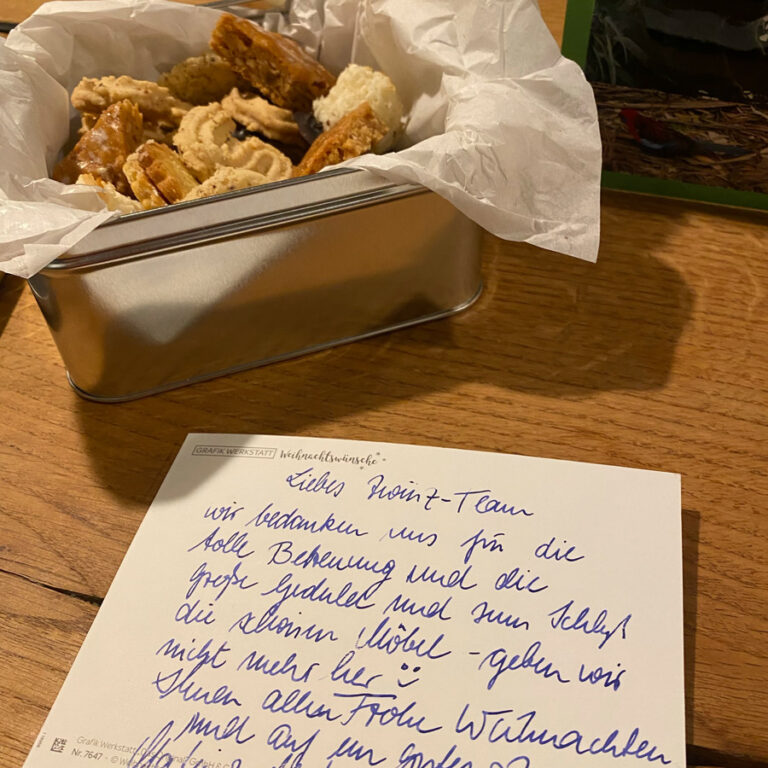 GRAFIK WERKSTATT Weihnachtswünsche
Liebes Prinz-Team
wir bedanken uns für die
tolle Betreuung und die
große Geduld und zum Schluß
die schönen Möbel - geben wir
nicht mehr her
Ihnen allen Frohe Weihnachten
und auf ein
Nr. 7647